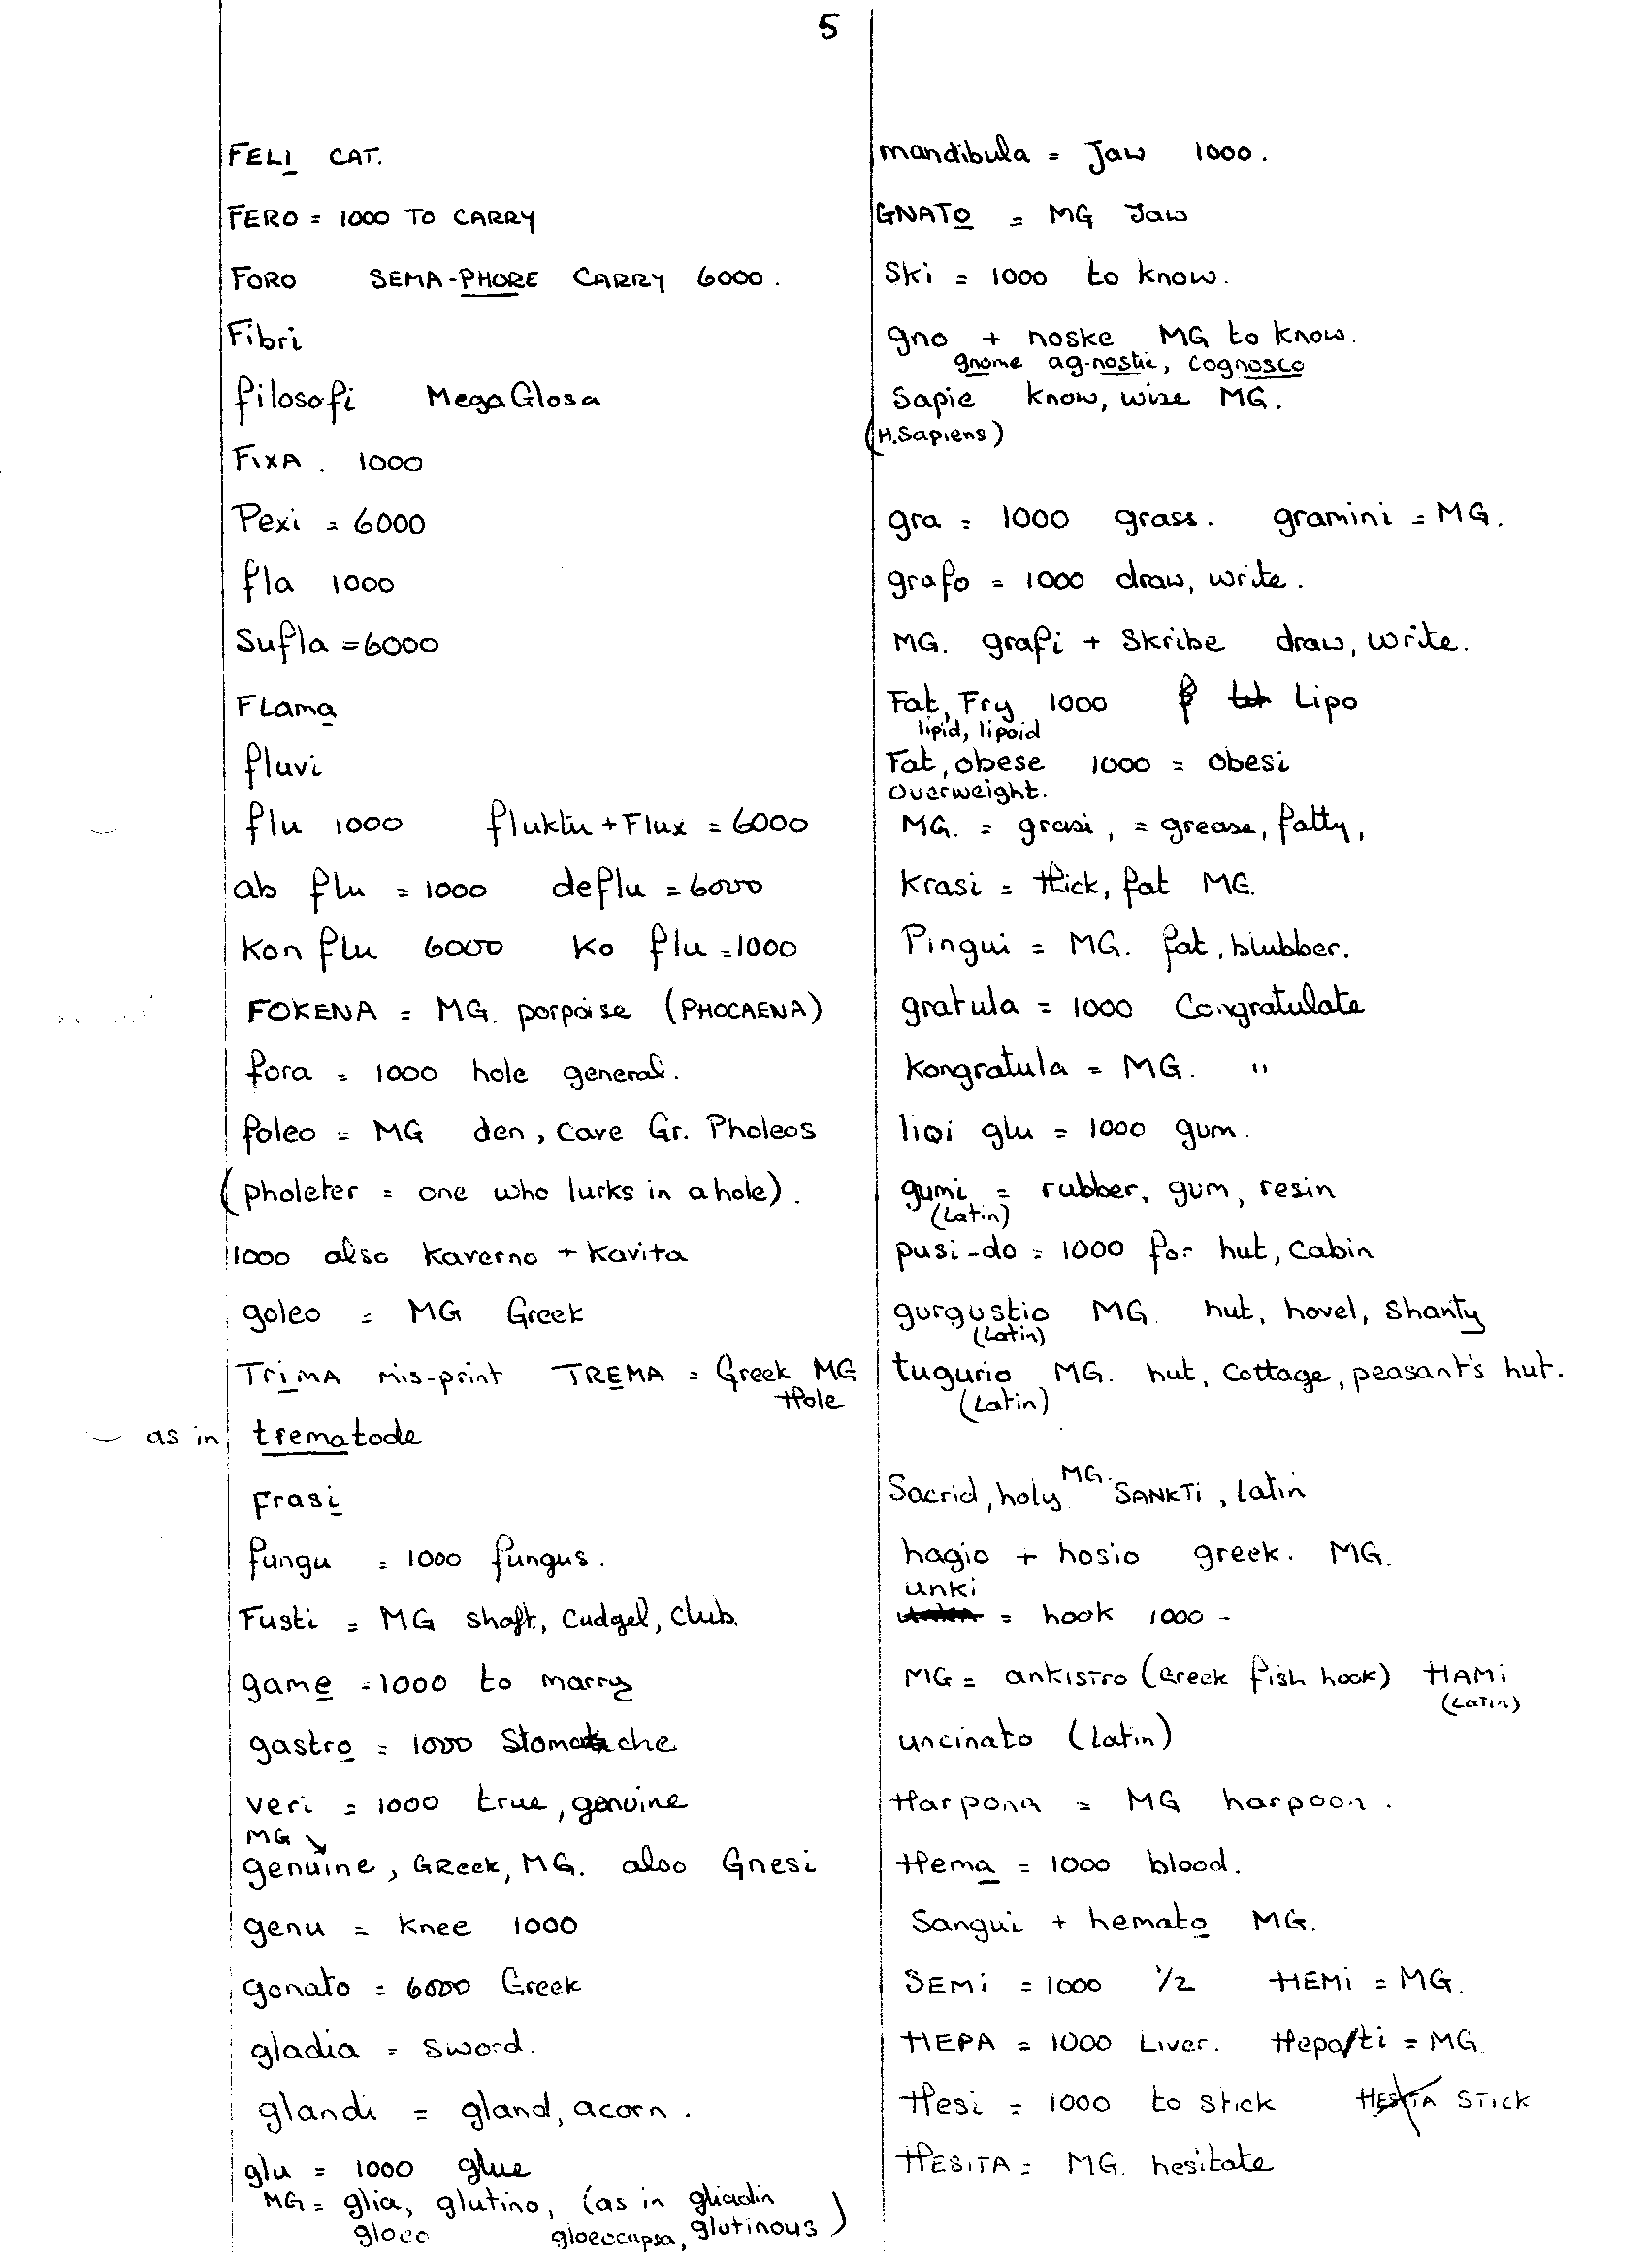 5
FELI CAT.
FERO = 1000 TO CARRY
FORO SEMA-PHORE CARRY 6000.
Fibri
filosofi MegaGlosa
FIXA. 1000
Pexi = 6000
fla 1000
Sufla = 6000
FLama
fluvi
flu 1000 fluktu + Flux = 6000
ab flu = 1000 deflu = 6000
Kon flu 6000 Ko flu = 1000
FOKENA = MG. porpoise (PHOCAENA)
fora = 1000 hole general.
foleo = MG den, cave Gr. Pholeos
(pholeter = one who lurks in a hole).
1000 also Kaverno + Kavita
goleo = MG Greek
TRiMA mis-print TREMA = Greek MG
Hole
as in trematode
Frasi
fungu = 1000 fungus.
Fusti = MG shaft, cudgel, club.
game = 1000 to marry
gastro = 1000 Stomache
veri = 1000 true, genuine
MG
genuine, GReek, MG. also Gnesi
genu = Knee 1000
gonato = 6000 Greek
gladia = Sword.
glandi = gland, acorn.
glu = 1000 glue
MG = glia, glutino, (as in gliadin
gloeo gloeocapsa, glutinous)
mandibula = Jaw 1000.
GNATO = MG Jaw
Ski = 1000 to know.
gno + noske MG to know.
gnome ag-nostic, cognosco
Sapie know, wise MG.
(H.Sapiens)
gra = 1000 grass. gramini = MG.
grafo = 1000 draw, write.
MG. grafi + Skribe draw, write.
Fat, Fry 1000 Lipo
lipid, lipoid
Fat, obese 1000 = obesi
Overweight.
MG. = grasi, = grease, fatty,
Krasi = thick, fat MG.
Pingui = MG. fat, blubber.
gratula = 1000 Congratulate
Kongratula = MG. "
liqi glu = 1000 gum.
gumi = rubber, gum, resin
(Latin)
pusi-do = 1000 for hut, Cabin
gurgustio MG. hut, hovel, Shanty
(Latin)
tugurio MG. hut, Cottage, peasant's hut.
(Latin)
Sacrid, holy MG. SANKTi, Latin
hagio + hosio greek. MG.
unki
= hook 1000 -
MG = ankistro (Greek fish hook) HAMi
(LATin)
uncinato (Latin)
Harpona = MG harpoon.
Hema = 1000 blood.
Sangui + hemato MG.
SEMi = 1000 1/2 HEMi = MG.
HEPA = 1000 Liver. Hepa/ti = MG
Hesi = 1000 to stick HESITA STICK
HESITA = MG. hesitate